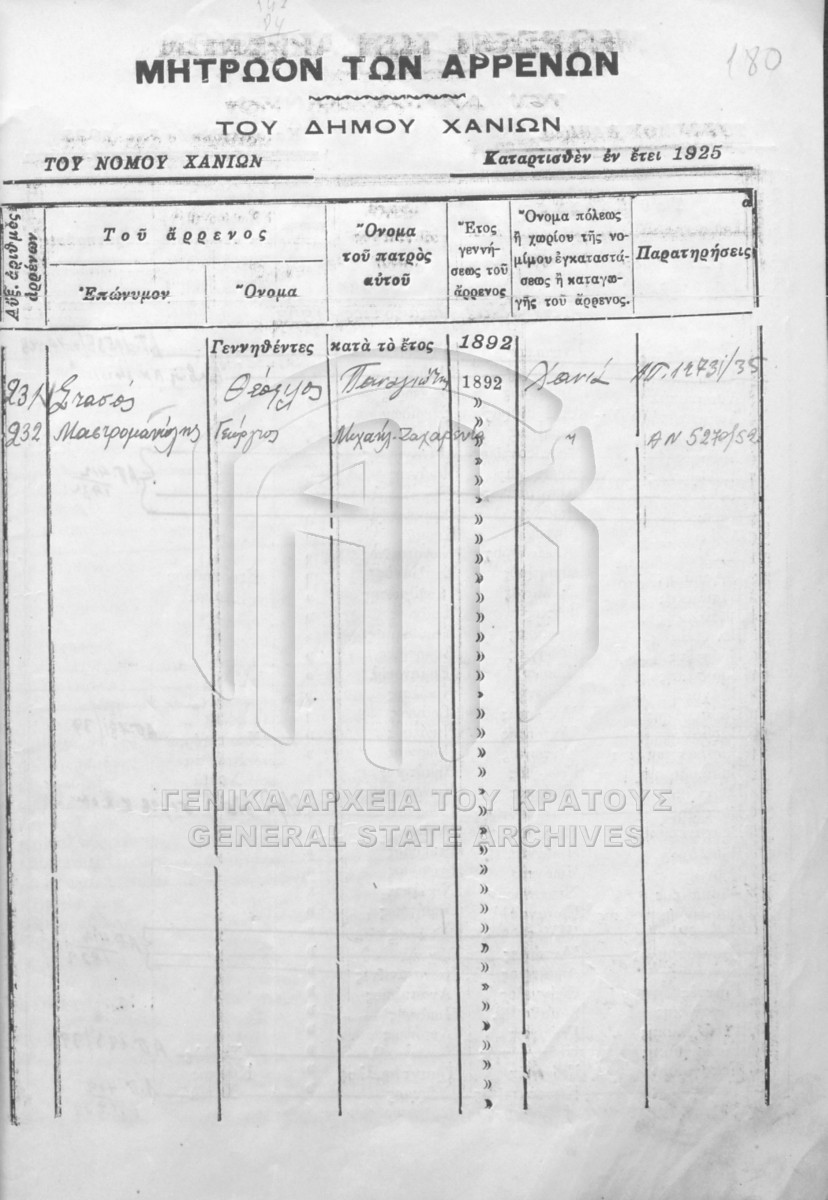 180
ΜΗΤΡΩΟΝ ΤΩΝ ΑΡΡΕΝΩΝ
ΤΟΥ ΔΗΜΟΥ ΧΑΝΙΩΝ
ΤΟΥ ΝΟΜΟΥ ΧΑΝΙΩΝ
Καταρτισθὲν ἐν ἔτει 1925
Αὔξ. ἀριθμὸς ἀρρένων
Τοῦ ἄρρενος
Ἐπώνυμον
Ὄνομα
Ὄνομα
τοῦ πατρὸς
αὐτοῦ
Ἔτος
γεννή-
σεως τοῦ
ἄρρενος
Ὄνομα πόλεως
ἢ χωρίου τῆς νο-
μίμου ἐγκαταστά-
σεως ἢ καταγω-
γῆς τοῦ ἄρρενος.
Παρατηρήσεις
Γεννηθέντες κατὰ τὸ ἔτος 1892
231 Στασός 1892 Χανιά
232 Μαστρομανώλης Γεώργιος Μιχαήλ - Ζαχαρένια » " ΑΝ 5270/52
ΓΕΝΙΚΑ ΑΡΧΕΙΑ ΤΟΥ ΚΡΑΤΟΥΣ
GENERAL STATE ARCHIVES